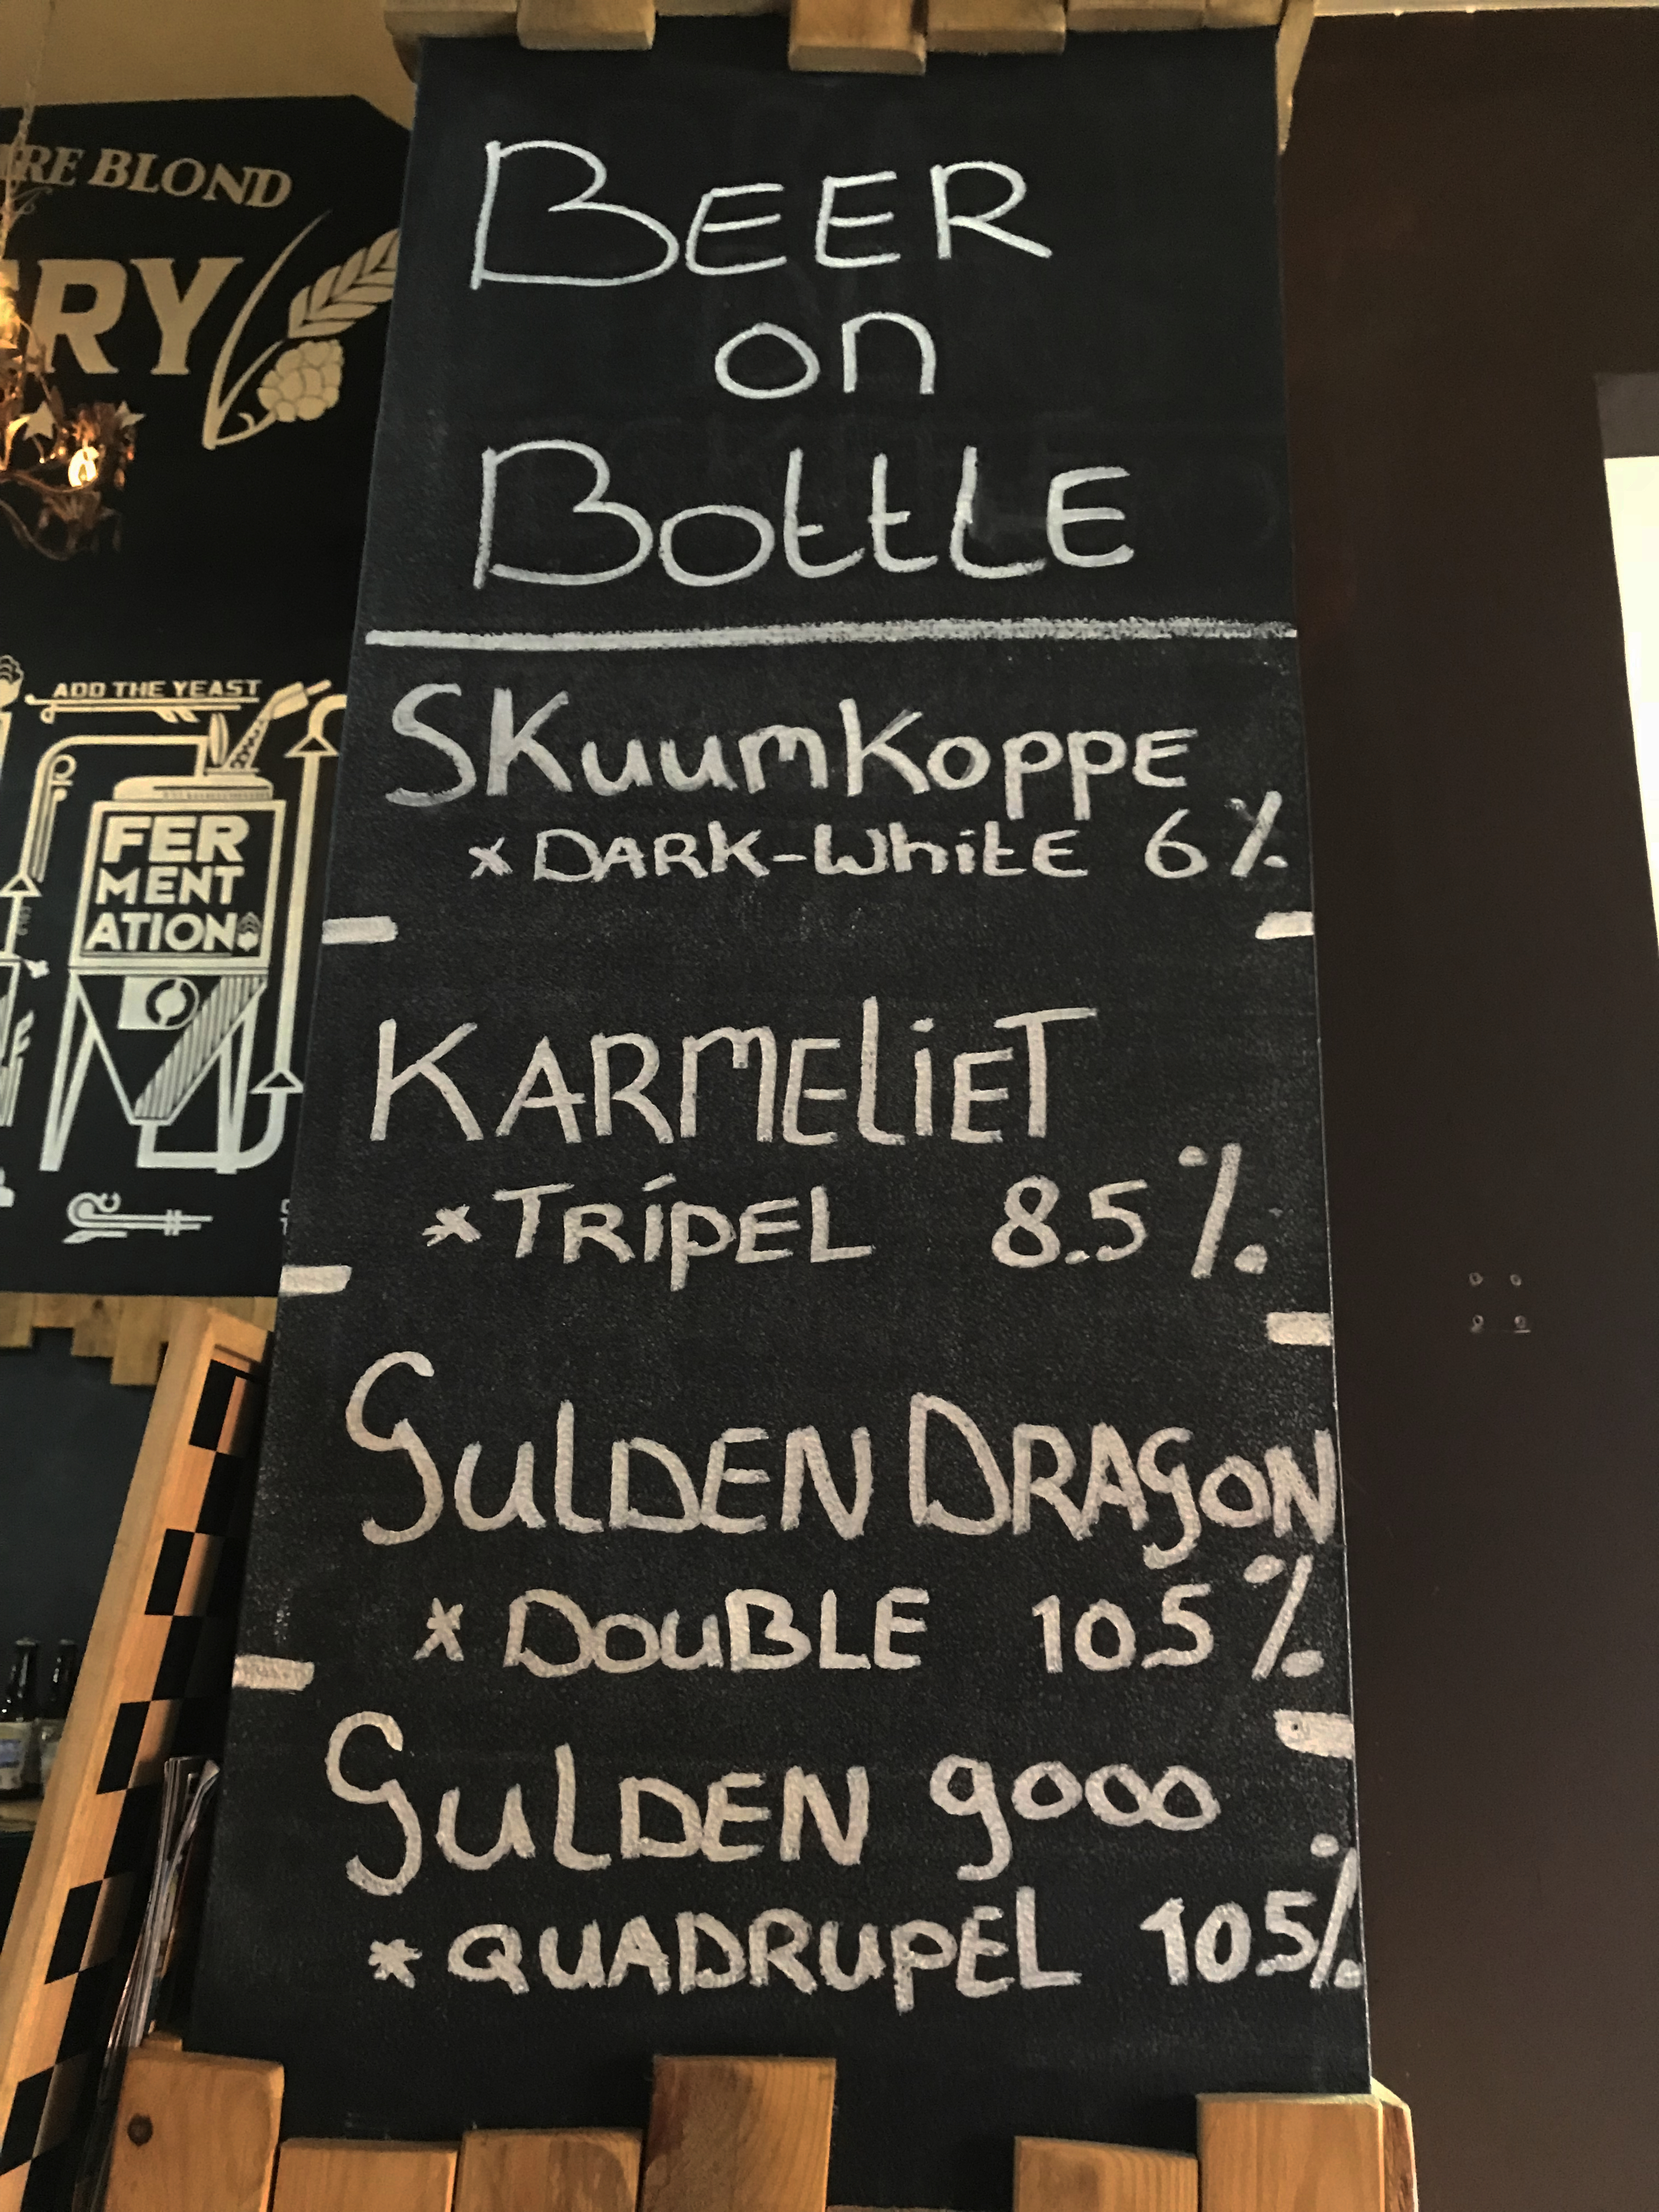 BLOND
RY
ADD THE YEAST
FER
MENT
ATION
BEER
on
BottLE
SKuumKoppE
* DARK-WhitE 6%
KARMEliET
* TRípEL 8.5%
GulDEN DRAGON
* DouBLE 10.5%
GulDEN gooo
* QUADRUpEL 10.5%